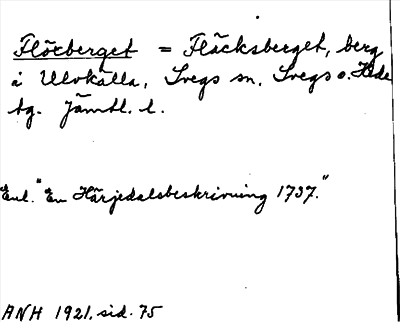 Flöcberget = Fläcksberget, berg
å Ulvkälla, Svegs sn. Svegs o. Hede
tg. Jämtl. l.
Enl. "En Härjedalsbeskrivning 1737."
ANH 1921. sid. 75